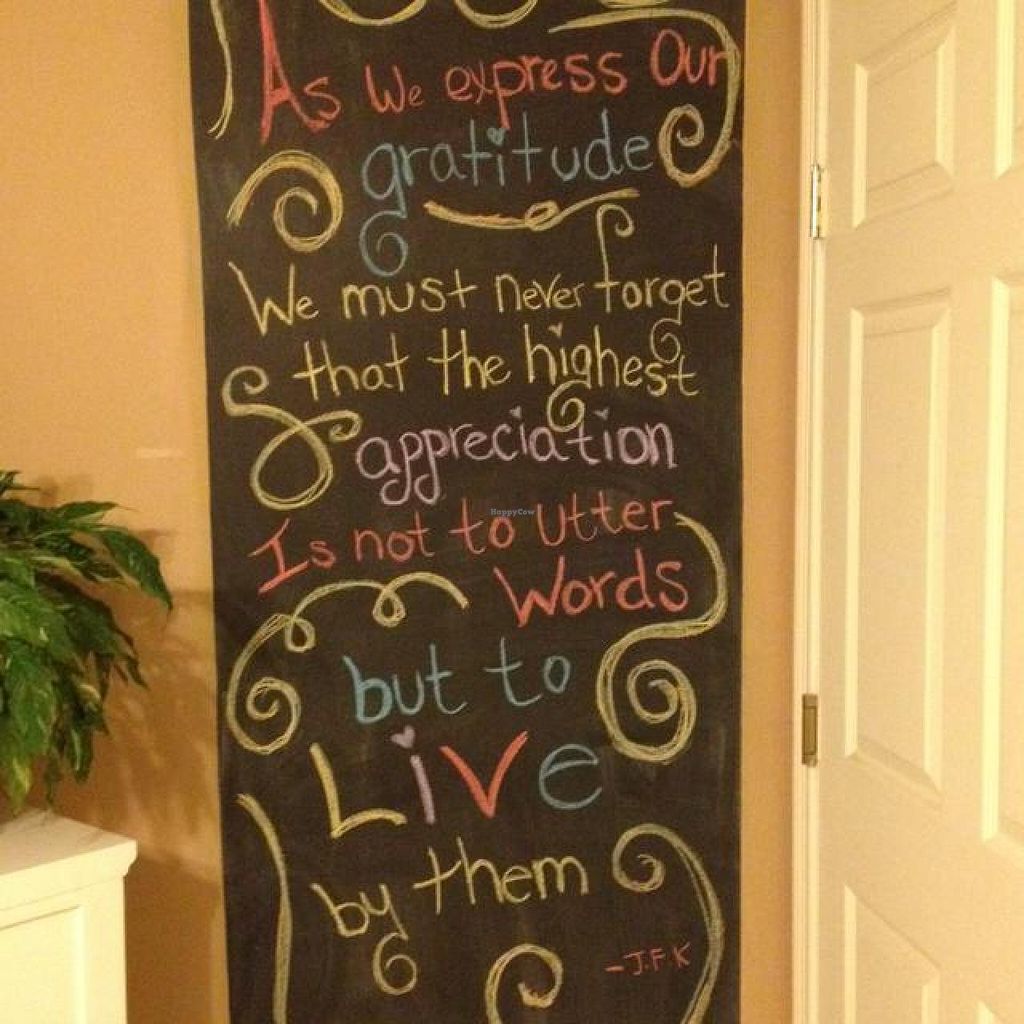 As We express Our
gratitude
We must never forget
that the highest
appreciation
Is not to Utter
Words
but to
Live
by them
- J.F.K
HappyCow